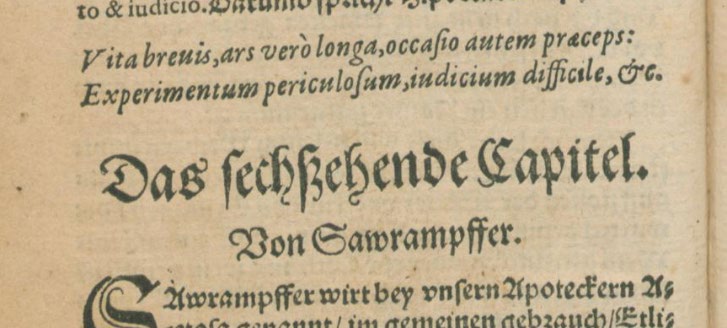 to & iudicio. Darumb spricht
Vita breuis, ars verò longa, occasio autem præceps:
Experimentum periculosum, iudicium difficile, &c.
Das sechßzehende Capitel.
Von Sawrampffer.
SAwrampffer wirt bey vnsern Apoteckern A⸗
cetosa genannt/ im gemeinen gebrauch/ Etli⸗